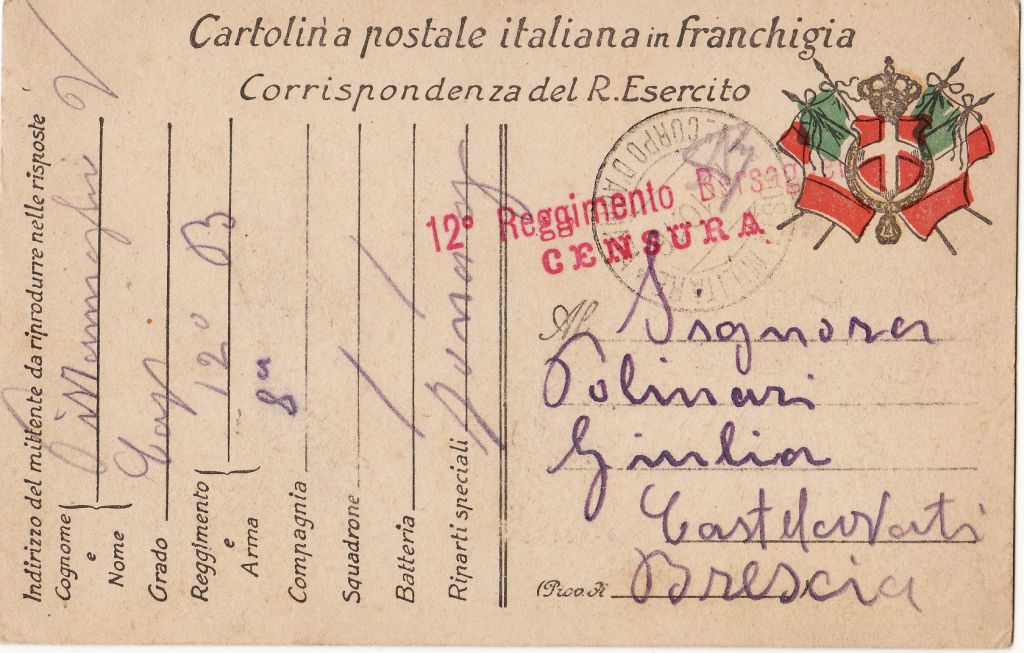 Cartolina postale italiana in franchigia
Corrispondenza del R. Esercito
Indirizzo del mittente da riprodurre nelle risposte
Cognome
e
Nome
Grado Cap
Reggimento 12° B
e
Arma
Compagnia 8a
Squadrone
Batteria
Riparti speciali
12° Reggimento Bersaglieri
CENSURA
Al Signora
Polinari
Giulia
Castelcovati
(Prov. di Brescia)